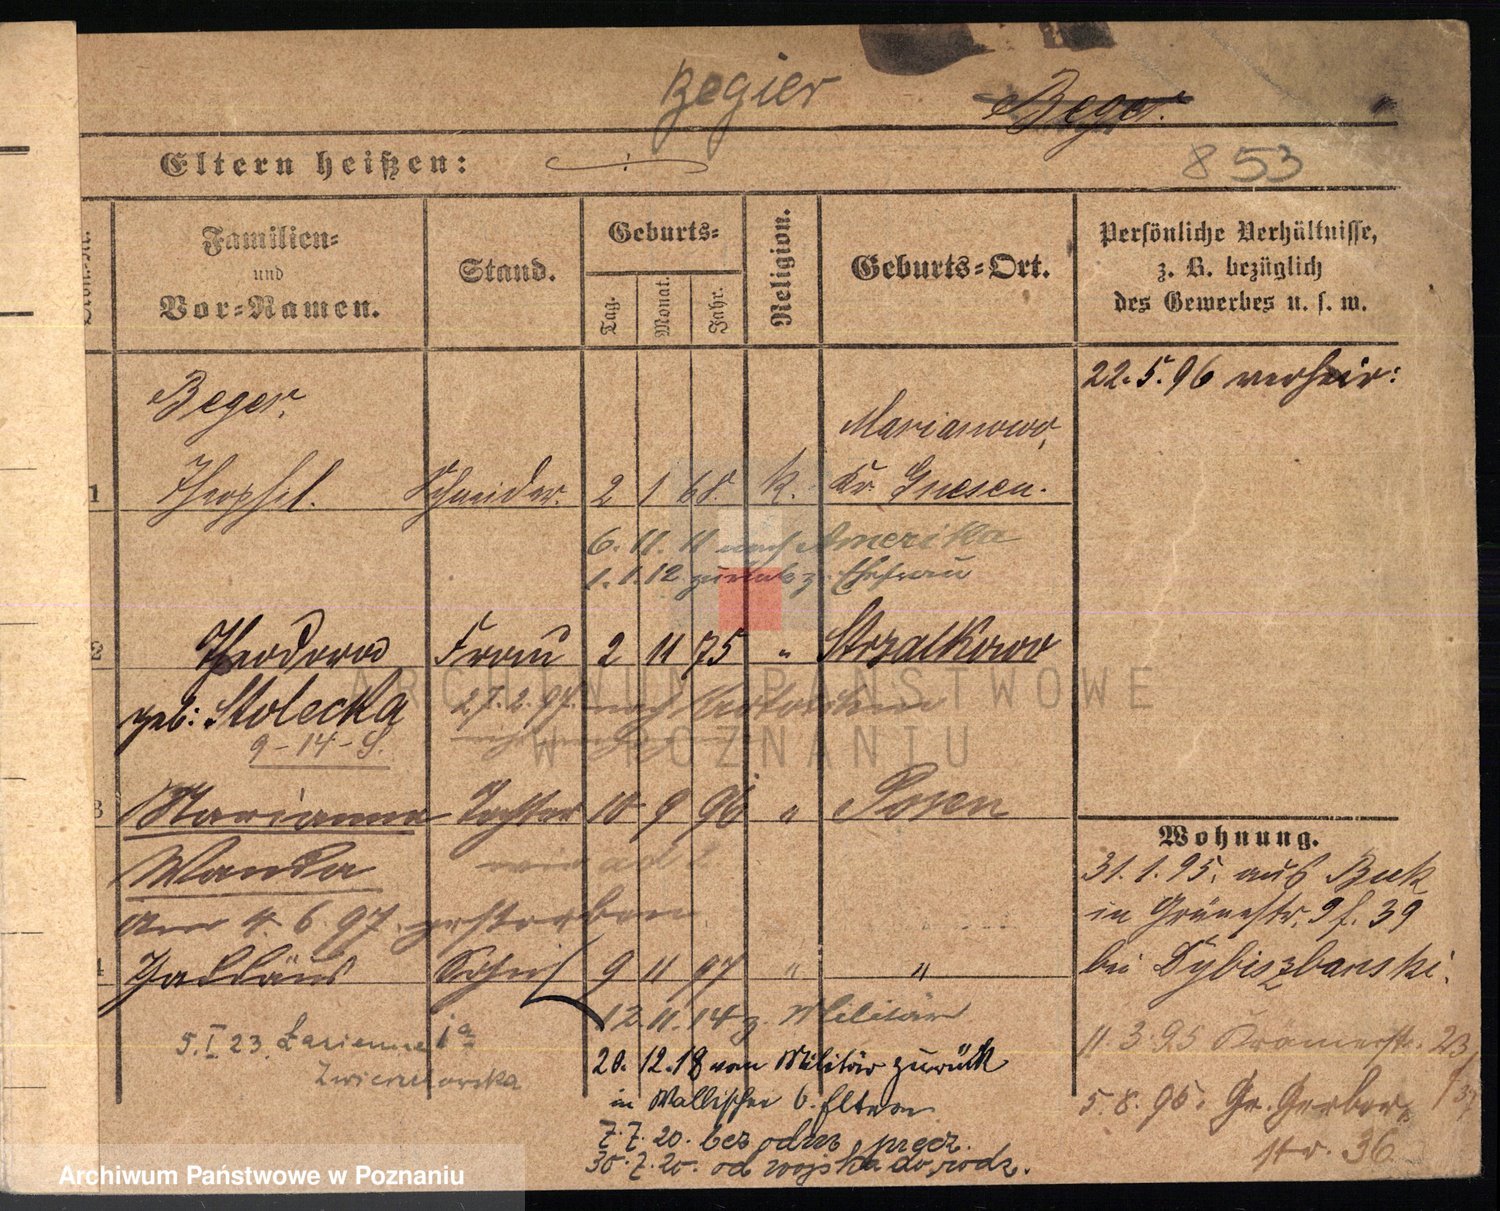 Begier Beger.
Eltern heißen:
853
Familien-
und
Vor-Namen.
Stand.
Geburts-
Tag.
Monat.
Jahr.
Religion.
Geburts-Ort.
Persönliche Verhältnisse,
z. B. bezüglich
des Gewerbes u. s. w.
22.5.96 verheir:
Beger.
Marianowo,
1 Theophil. Schneider. 2 1 68. K. Kr. Gnesen.
6. 11. 11 nach Amerika
1. 1. 12 zurück z. Ehefrau
2 Theodora Frau 2 11 75 " Strzalkowo
geb: Stolecka 27.2.97. nach
9-14-S.
3 Marianna Tochter 10 9 96 " Posen
Wanda wie ad 2
am 4. 6. 97. gestorben
4 Thaddäus Sohn 9 11 97 " "
12.11.14 z. Militär
20.12.18 vom Militär zurück
in Wallischei b. Eltern
7.7.20. bez odzn. przez.
30.7.20. od wojska do rodz.
5.I 23.
Wohnung.
31.1.95. aus Buk
in Grünestr. 9 f. 39
bei Dybiszbanski.
11.3.95 Krämerstr. 23,
5.8.95. Gr. Gerber
str. 36
ARCHIWUM PAŃSTWOWE
W POZNANIU
Archiwum Państwowe w Poznaniu